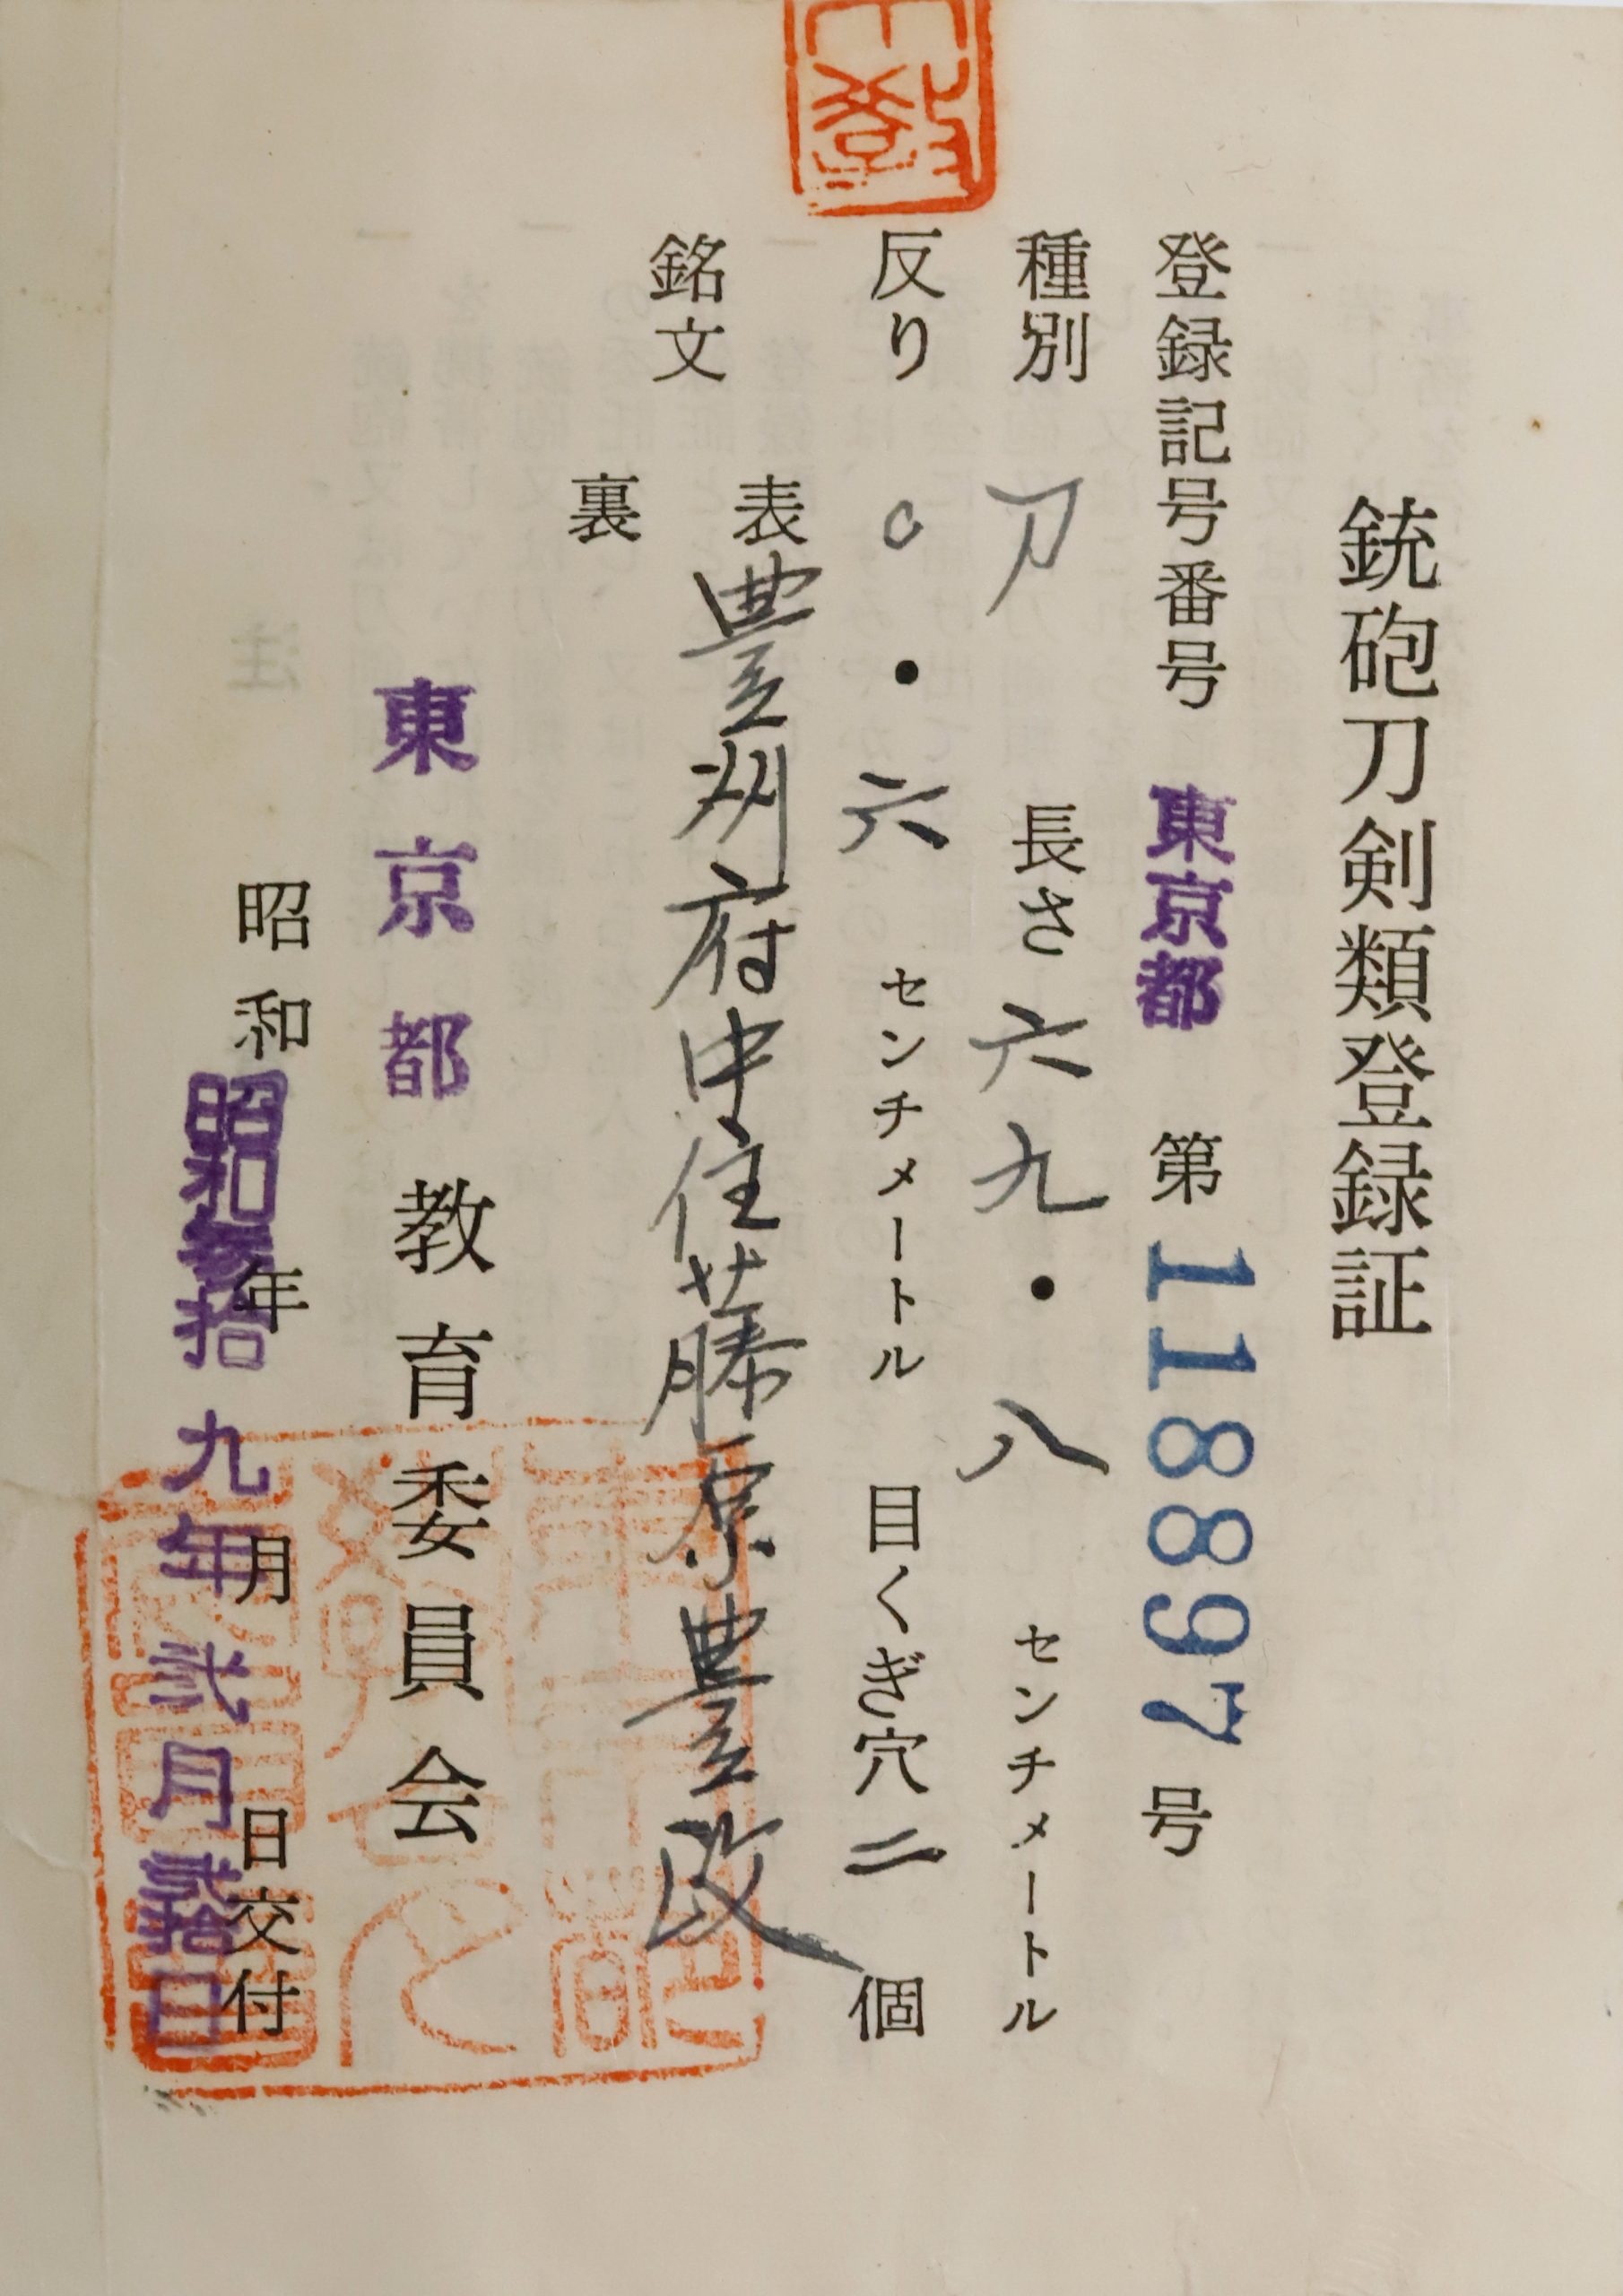 銃砲刀剣類登録証
登録記号番号 東京都 第 118897 号
種別 刀 長さ 六九・八 センチメートル
反り 〇・六 センチメートル 目くぎ穴 二 個
銘文 表 豊州府中住藤原豊政
裏
東京都 教育委員会
昭和 年 月 日交付
昭和参拾九年弐月弐拾日